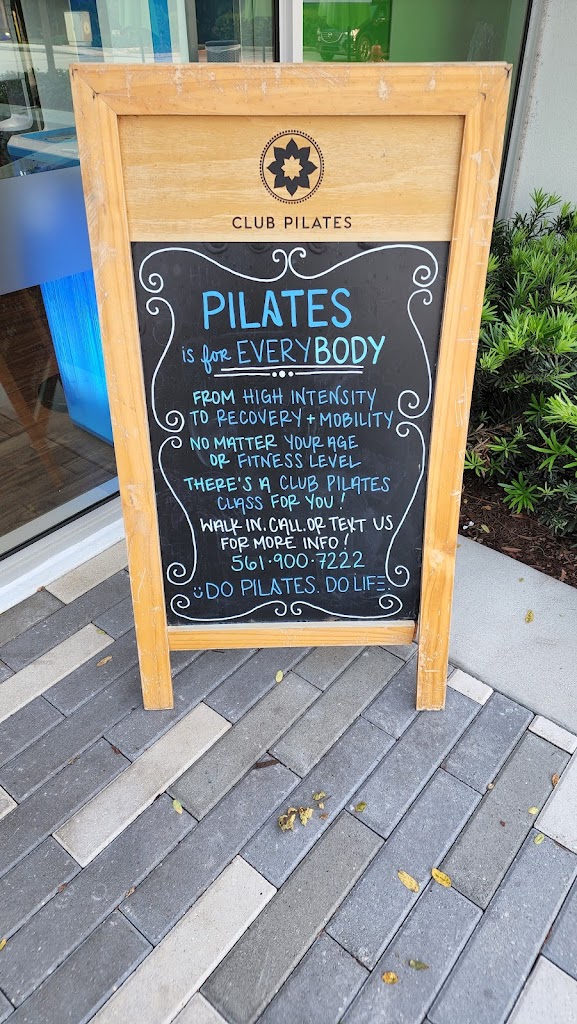 CLUB PILATES
PILATES
is for EVERYBODY
FROM HIGH INTENSITY
TO RECOVERY + MOBILITY
NO MATTER YOUR AGE
OR FITNESS LEVEL
THERE'S A CLUB PILATES
CLASS FOR YOU!
WALK IN. CALL. OR TEXT US
FOR MORE INFO!
561·900·7222
DO PILATES. DO LIFE.